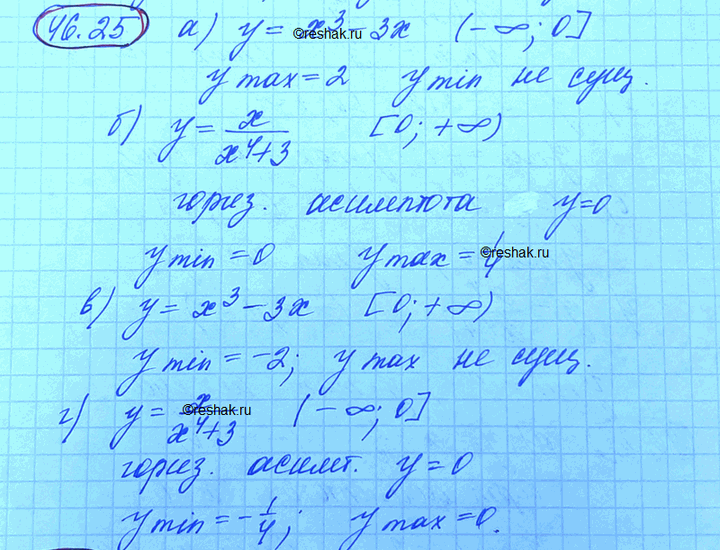 46.25 а) y = x³ - 3x (-∞; 0]
©reshak.ru
y max = 2 y min не сущ.
б) y = x/(x⁴+3) [0; +∞)
гориз. асимптота y=0
y min = 0 y max = 1/4
©reshak.ru
в) y = x³ - 3x [0; +∞)
y min = -2; y max не сущ.
г) y = x/(x⁴+3) (-∞; 0]
©reshak.ru
гориз. асимт. y = 0
y min = -1/4; y max = 0.